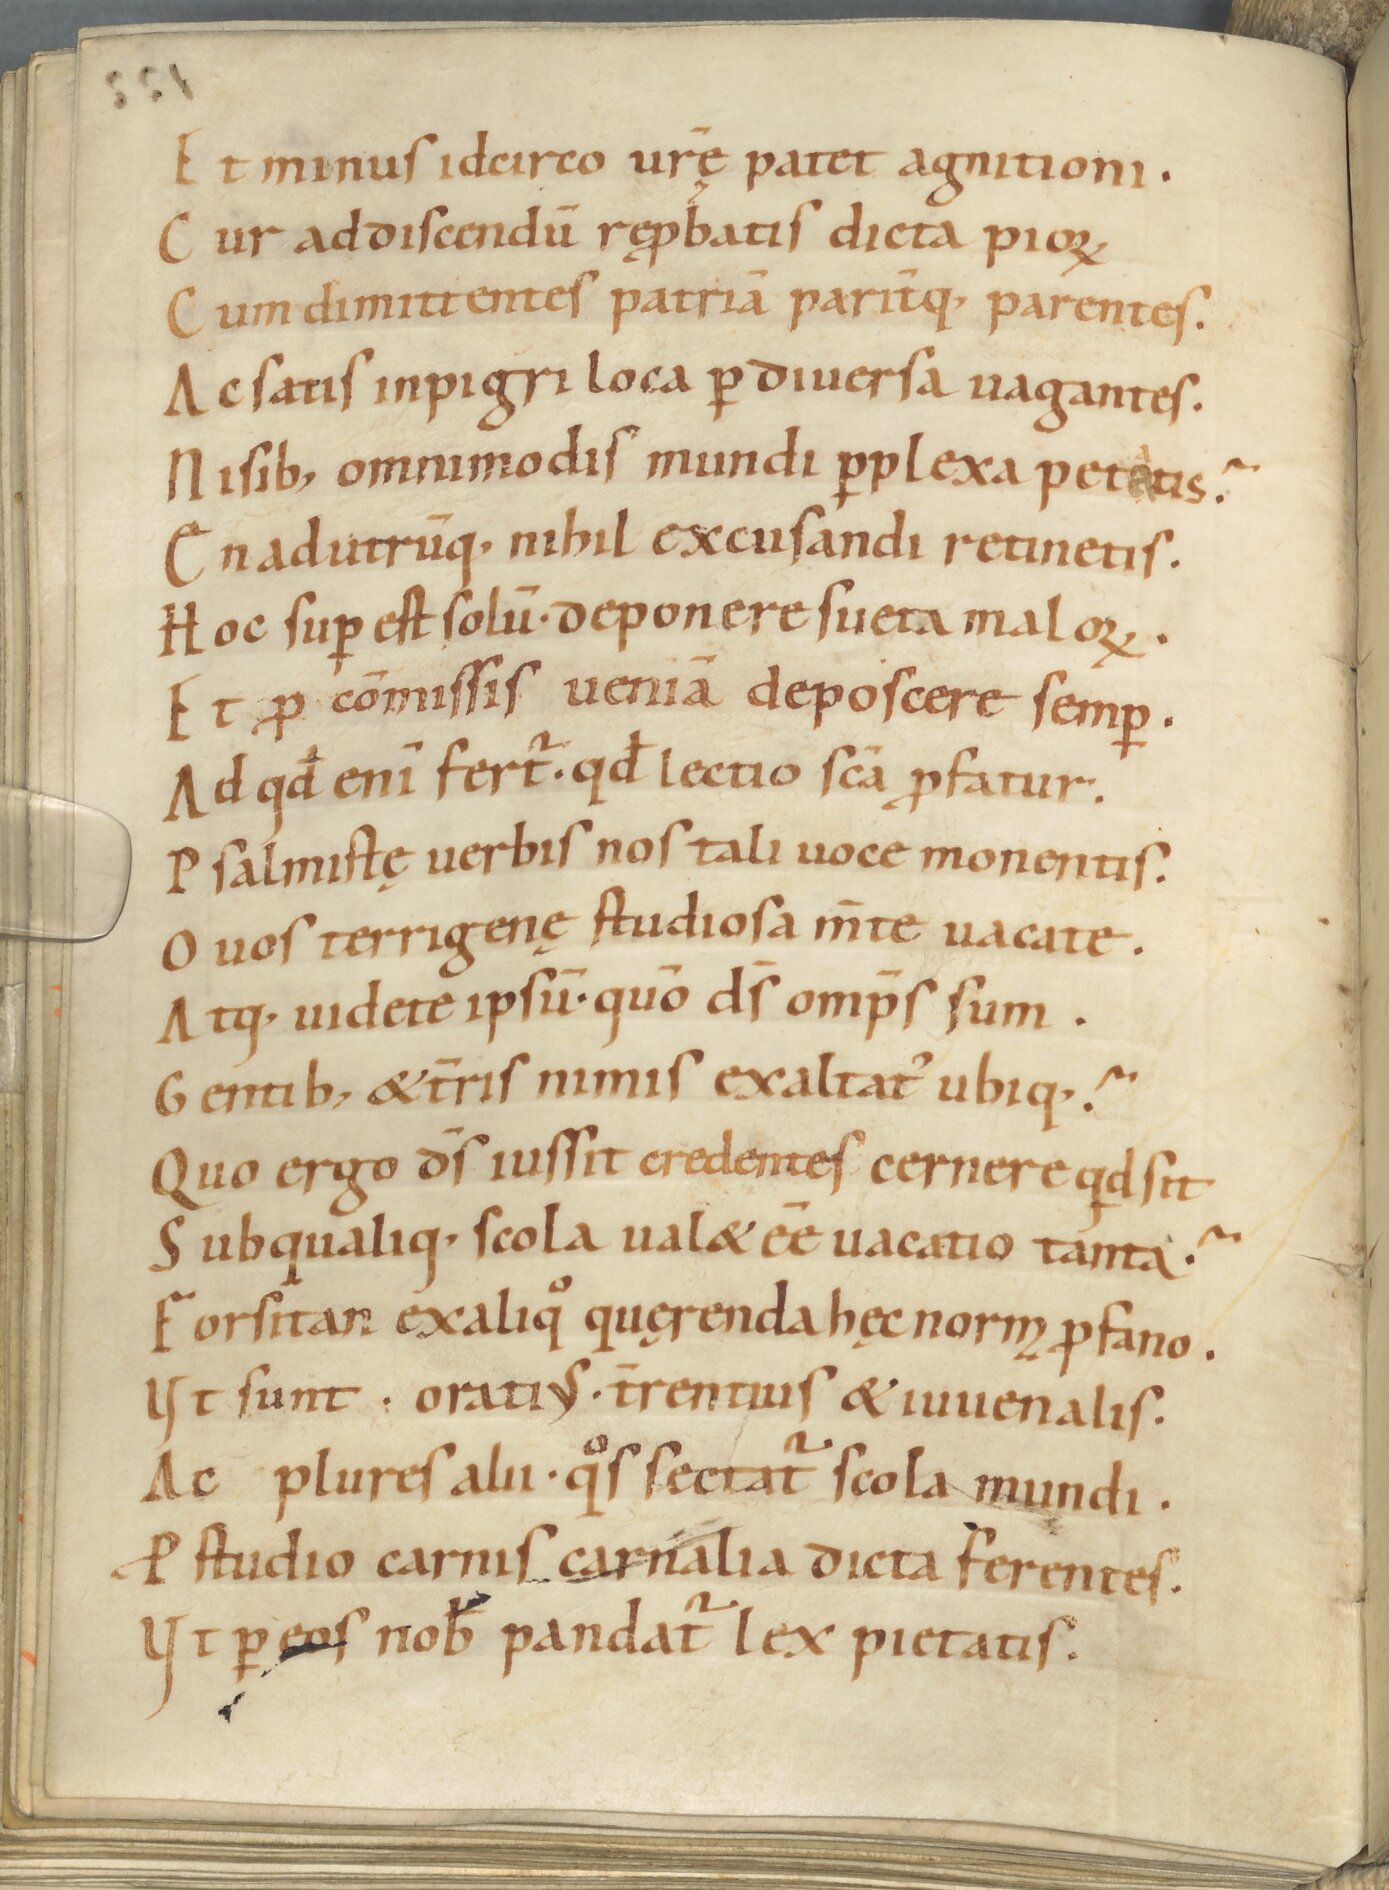 Et minus idcirco ur̄ę patet agnitioni.
Cur addiscendū ręꝓbatis dicta pioꝝ
Cum dimittentes patriā parit̄q, parentes.
Ac satis inpigri loca ꝑ diuersa uagantes.
Nisib, omnimodis mundi ꝑplexa petatis?
En adutrūq, nihil excusandi retinetis.
Hoc suꝑ est solū· deponere sueta maloꝝ.
Et ꝓ cōmissis ueniā deposcere semꝑ.
Ad qđ enī fert̄· qđ lectio scā ꝓfatur.
Psalmistę uerbis nos tali uoce monentis.
O uos terrigenę studiosa m̄te uacate.
Atq, uidete ipsū· quō ds̄ omp̄s sum.
Gentib, & t̄ris nimis exaltatꝰ ubiq,?
Quo ergo ds̄ iussit credentes cernere qd sit
Sub qualiq, scola ual& ēē uacatio tanta?
Forsitan ex aliqͦ quęrenda hęc normę ꝓfano.
Ut sunt · oratiꝰ· t̄rentius & iuuenalis.
Ac plures alii· qͦs sectat̄ scola mundi.
P studio carnis carnalia dicta ferentes.
Ut ꝑ eos nob̄ pandat̄ lex pietatis.